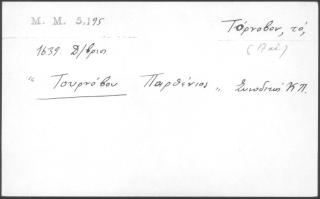 M. M. 5.195
Τόρνοβον, τό,
1639 Δ/βριοσ
" Τουρνόβου Παρθένιος „ Συνοδικό Κ.Π.